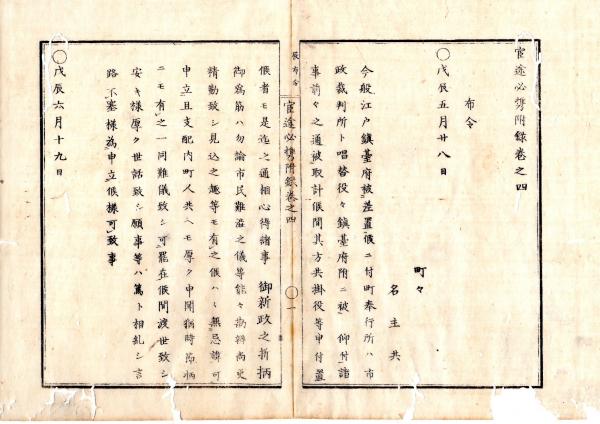 官途必携附録巻之四
布令
〇戊辰五月廿八日
町々
名主共
今般江戸鎮臺府被差置候ニ付町奉行所ハ市
政裁判所ト唱替役々鎮臺府附ニ被 仰付諸
事前々之通被取計候間其方共掛役等申付置
官途必携附録巻之四
〇一
候者モ是迄之通相心得諸事 御新政之折柄
御為筋ハ勿論市民難澁之儀等能々勘辨尚更
精勤致シ見込之趣等モ有之候ハヽ無忌諱可
申立且支配内町人共ヘモ厚ク申聞猶時節柄
ニモ有之一同難儀致シ可罷在候間渡世致シ
安キ様厚ク世話致シ願事等ハ篤ト相糺シ言
路不塞様為申立候様可致事
〇戊辰六月十九日